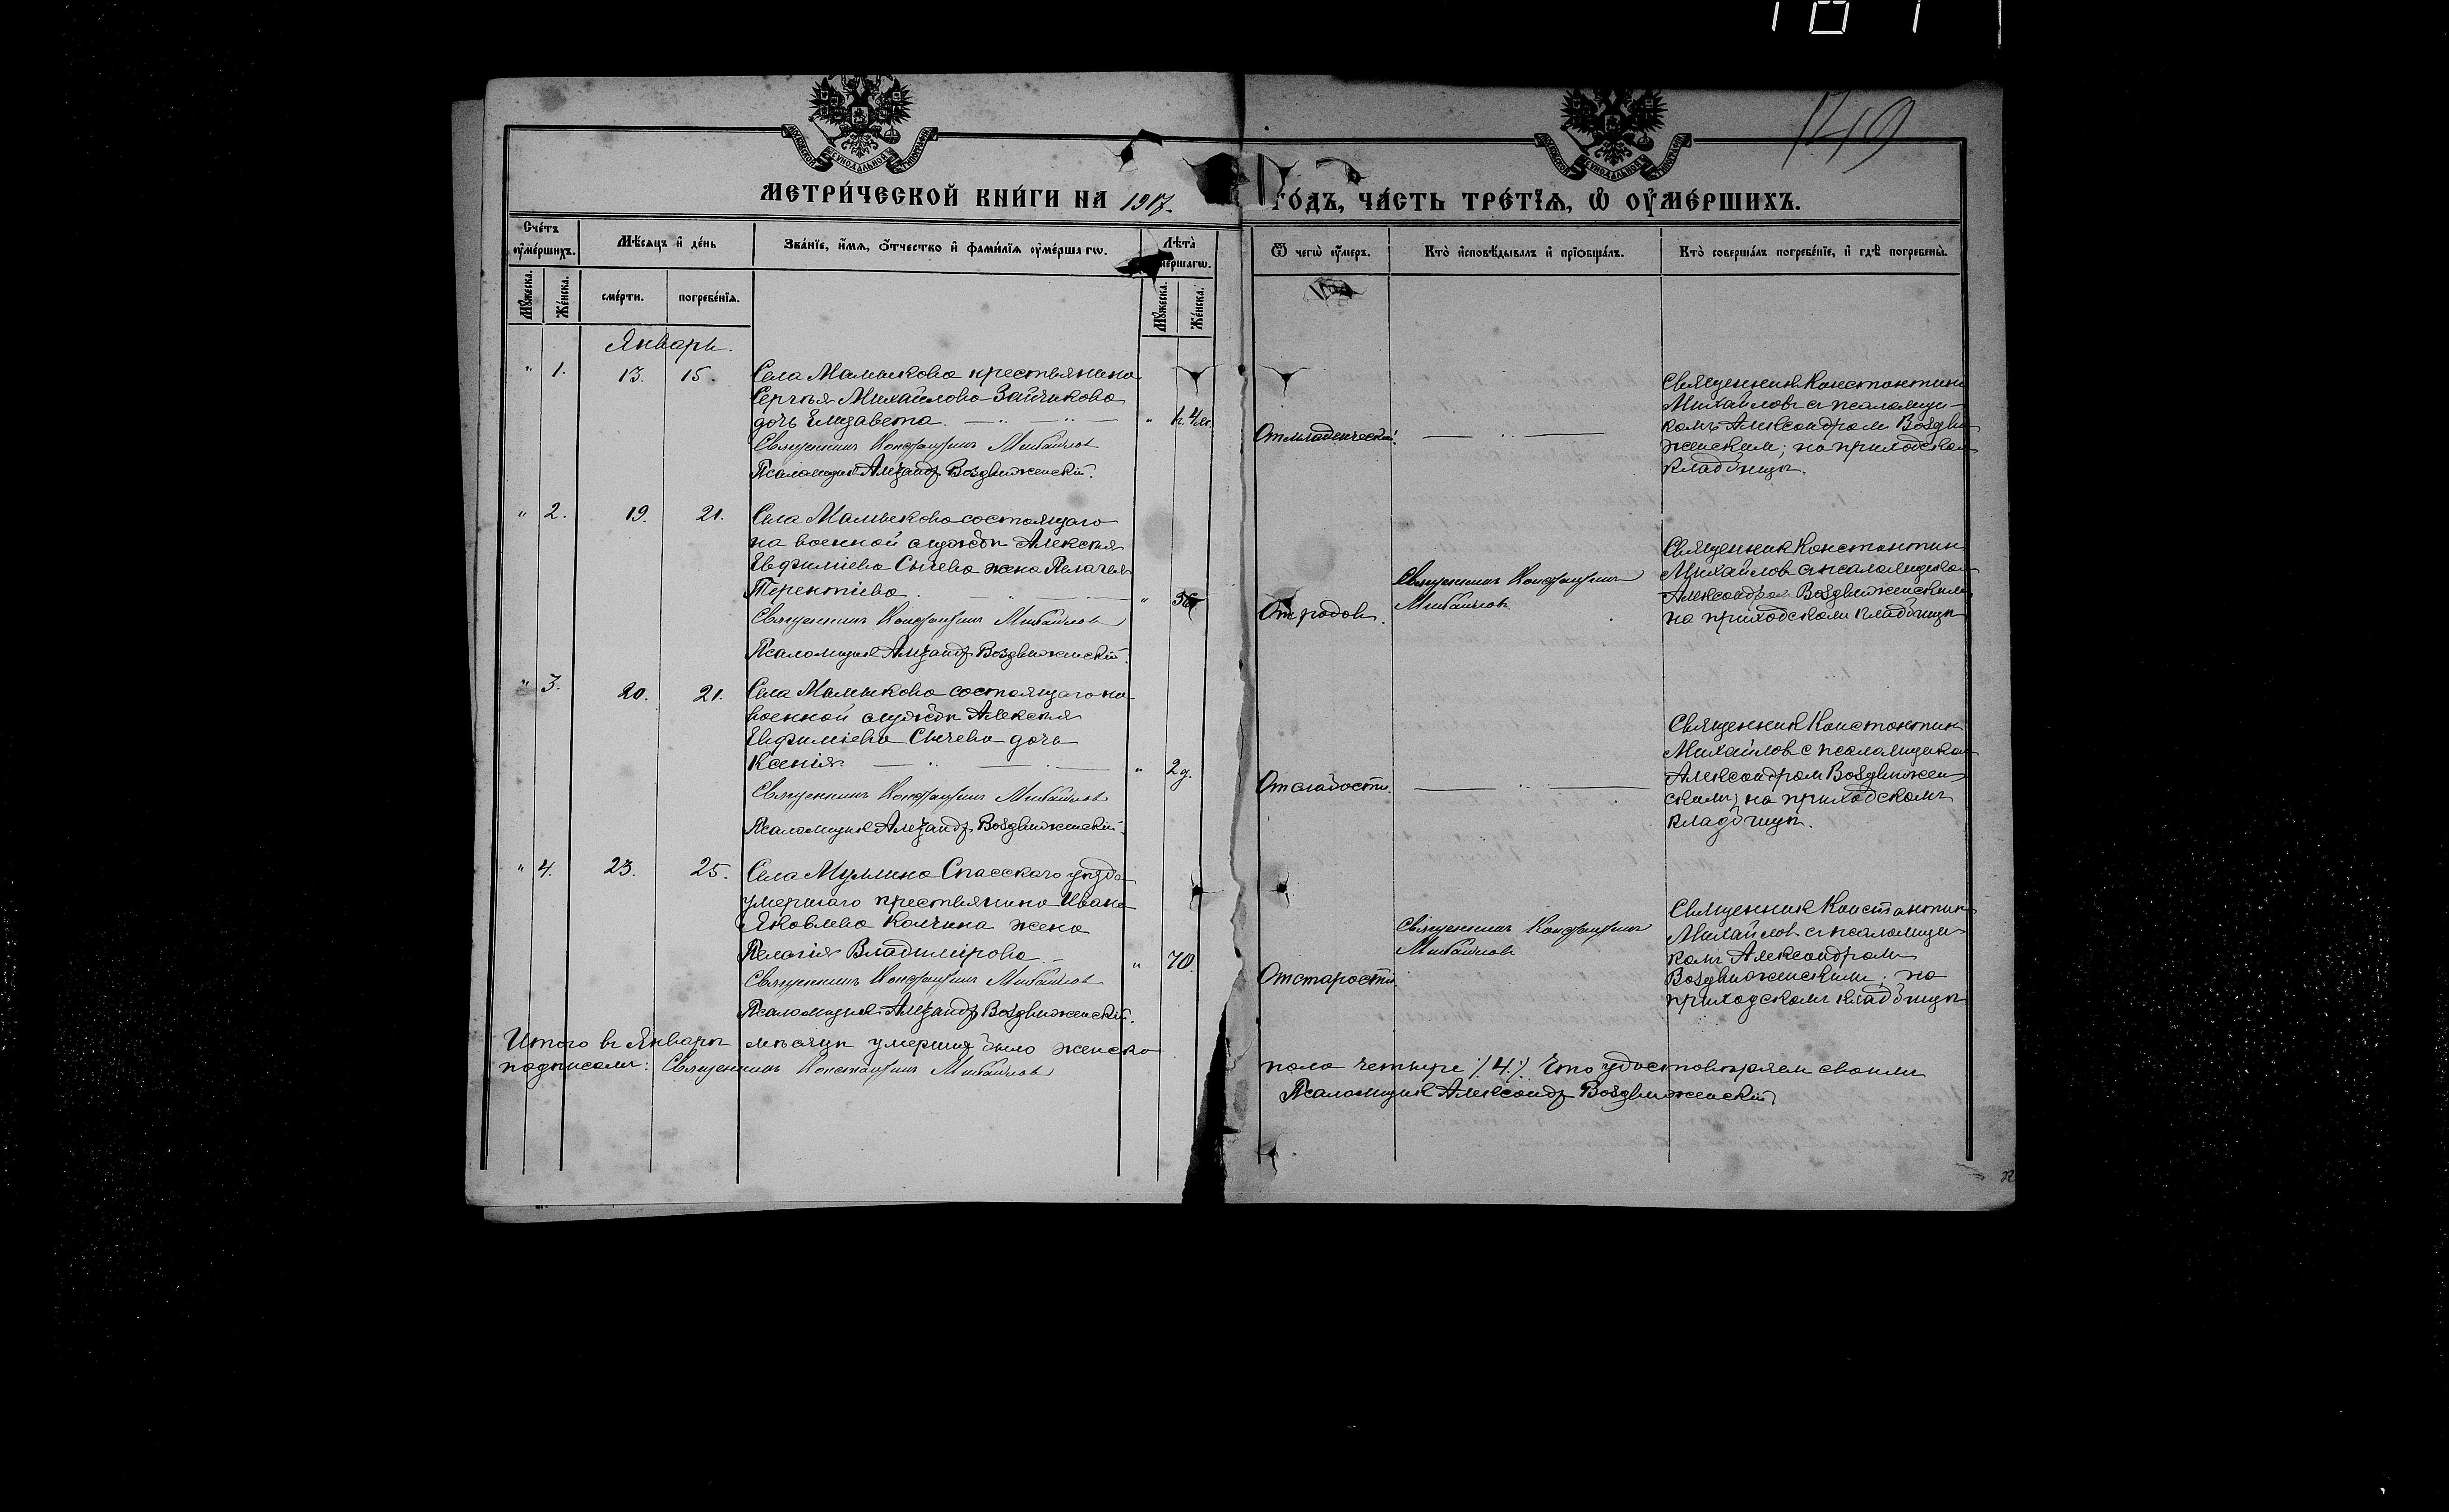 149
МОСКОВСКОЙ СѴНОДАЛЬНОЙ ТИПОГРАФІИ
МОСКОВСКОЙ СѴНОДАЛЬНОЙ ТИПОГРАФІИ
МЕТРИ́ЧЕСКОЙ КНИ́ГИ НА 1917. ГО́ДЪ, ЧА́СТЬ ТРЕ́ТЇѦ, Ѡ҆ ОУ҆МЕ́РШИХЪ.
Сче́тъ оу҆ме́ршихъ.
Мѣ́сѧцъ и҆ де́нь
Зва́нїе, и҆́мѧ, ѻ҆́тчество и҆ фами́лїѧ оу҆ме́ршагѡ.
Лѣта̀ оу҆ме́ршагѡ.
Ѿ чегѡ̀ оу҆́меръ.
Кто̀ и҆сповѣ́дывалъ и҆ прїѡбща́лъ.
Кто̀ соверша́лъ погребе́нїе, и҆ гдѣ̀ погребены̀.
Мꙋ́жеска.
Же́нска.
сме́рти.
погребе́нїѧ.
Мꙋ́жеска.
Же́нска.
Январь.
" 1. 13. 15. Села Мамыкова крестьянина
Сергѣя Михайлова Зайчикова
дочь Елизавета. " 4 м.
Священникъ Константинъ Михайловъ
Псаломщикъ Александръ Воздвиженскій.
От младенческой.
Священник Константинъ
Михайловъ съ псаломщи-
комъ Александром Воздви
женским; на приходском
кладбищѣ.
" 2. 19. 21. Села Мамыкова состоящаго
на военной службѣ Алексѣя
Евфиміева Сычева жена Пелагея
Терентіева. " 36
Священникъ Константинъ Михайловъ
Псаломщикъ Александръ Воздвиженскій.
От родов.
Священникъ Константинъ
Михайловъ
Священник Константин
Михайлов съ псаломщиком
Александром Воздвиженским
на приходском кладбищѣ
" 3. 20. 21. Села Мамыкова состоящаго на
военной службѣ Алексѣя
Евфиміева Сычева дочь
Ксенія " 2 д.
Священникъ Константинъ Михайловъ
Псаломщикъ Александръ Воздвиженскій.
От слабости.
Священник Константин
Михайлов с псаломщиком
Александром Воздвижен
ским; на приходскомъ
кладбищѣ.
" 4. 23. 25. Села Муллина Спасскаго уѣзда
умершаго крестьянина Ивана
Яковлева Калчина жена
Пелагія Владимірова. " 70.
Священникъ Константинъ Михайловъ
Псаломщикъ Александръ Воздвиженскій.
От старости
Священникъ Константинъ
Михайловъ
Священник Константин
Михайлов съ псаломщи
комъ Александром
Воздвиженским; на
приходскомъ кладбищѣ
Итого въ Январѣ мѣсяцѣ умерших было женска пола четыре /4/. Что удостовѣряем своими
подписами: Священникъ Константинъ Михайловъ Псаломщик Александръ Воздвиженскій